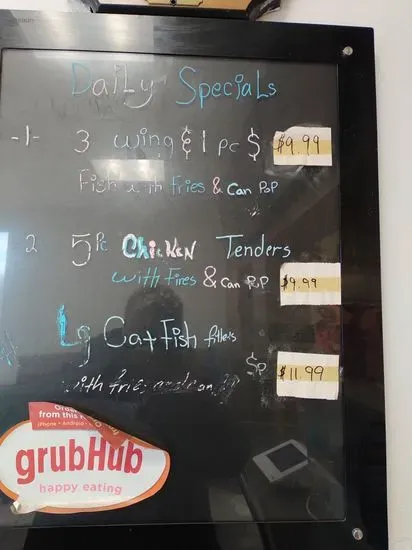 Daily Specials
-1- 3 wing & 1 pc $ $9.99
Fish with fries & Can PoP
-2 5 Pc Chicken Tenders
with Fires & Can PoP $9.99
Lg Catfish fillets
$P $11.99
with fries and can
from this
iPhone • Android
grubHub
happy eating